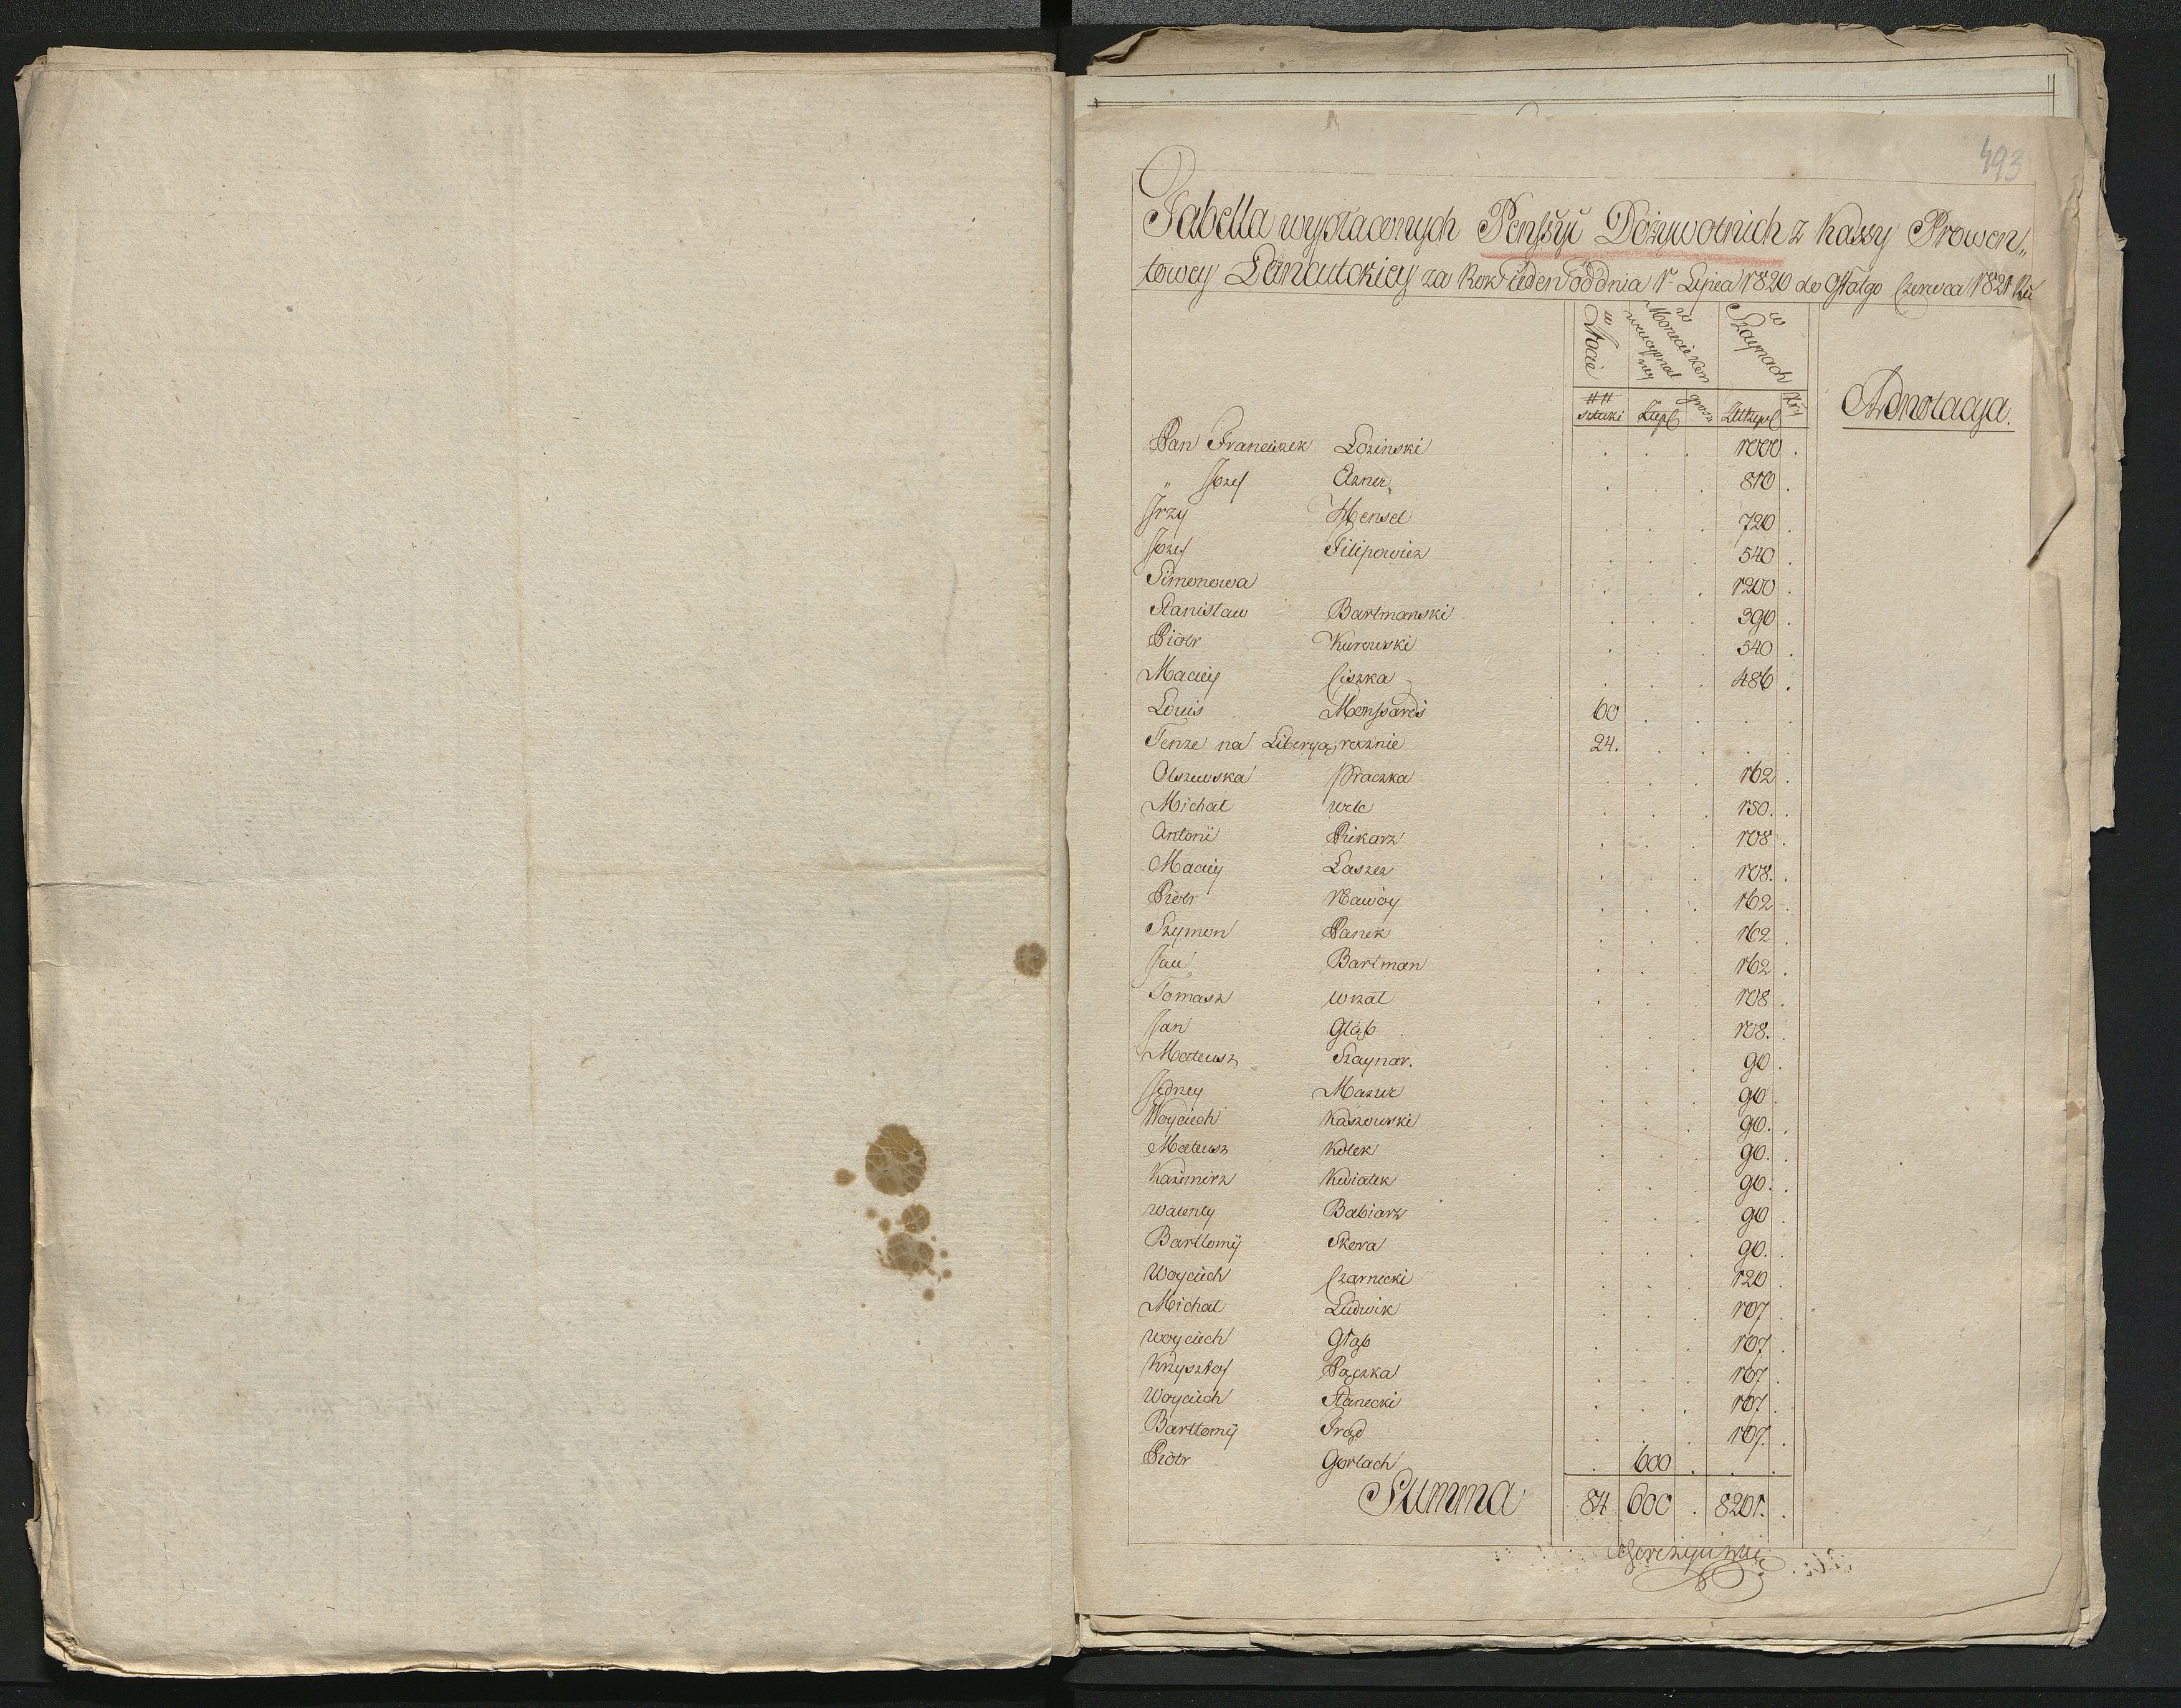 493
Tabella wypłaconych Penssyi Dożywotnich z Kassy Prowen„
towey Łancutskiey za Rok ieden od dnia 1. Lipca 1820 do Ostatgo Czerwca 1821 Ru
w Złocie
w Monecie Kon
wencyonal
ney
w Szaynach
Adnotacya.
## sztuki Zł grosz Xry
Pan Franciszek Loziński . . . 1000 .
„ Jozef . . . 810 .
Jrzy Hensel . . . 720 .
Jozef Filipowicz . . . 540 .
Simonowa . . . 1200 .
Stanisław Bartmański . . . 390 .
Piotr Kurowski . . . 540 .
Maciey Ciszka . . . 486 .
Louis 60 . . . .
Tenze na Liberyą rocznie 24. . . . .
Olszewska Praczka . . . 162 .
Michał . . . 150. .
Antoni Piekarz . . . 108 .
Maciey Laszcz . . . 108. .
Piotr Nawoy . . . 162 .
Szymon Panek . . . 162 .
Jan Bartman . . . 162 .
Tomasz . . . 108 .
Jan Głąb . . . 108. .
Mateusz Szaynar. . . . 90 .
Jędrzey Mazur . . . 90 .
Woyciech Kaszowski . . . 90. .
Mateusz Kołek . . . 90. .
Kazimirz Kwiatek . . . 90. .
Walenty Babiarz . . . 90 .
Bartłomiy Skora . . . 90. .
Woyciech Czarnecki . . . 120 .
Michał Ludwik . . . 107 .
Woyciech Głąb . . . 107 .
Krzysztof Pączka . . . 107 .
Woyciech Stanecki . . . 107 .
Bartłomiy . . . 107. .
Piotr Gorlach . 600 . . .
Summa 84 600 . 8201. .